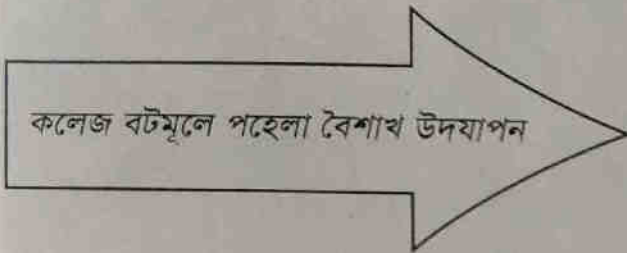 কলেজ বটমূলে পহেলা বৈশাখ উদযাপন